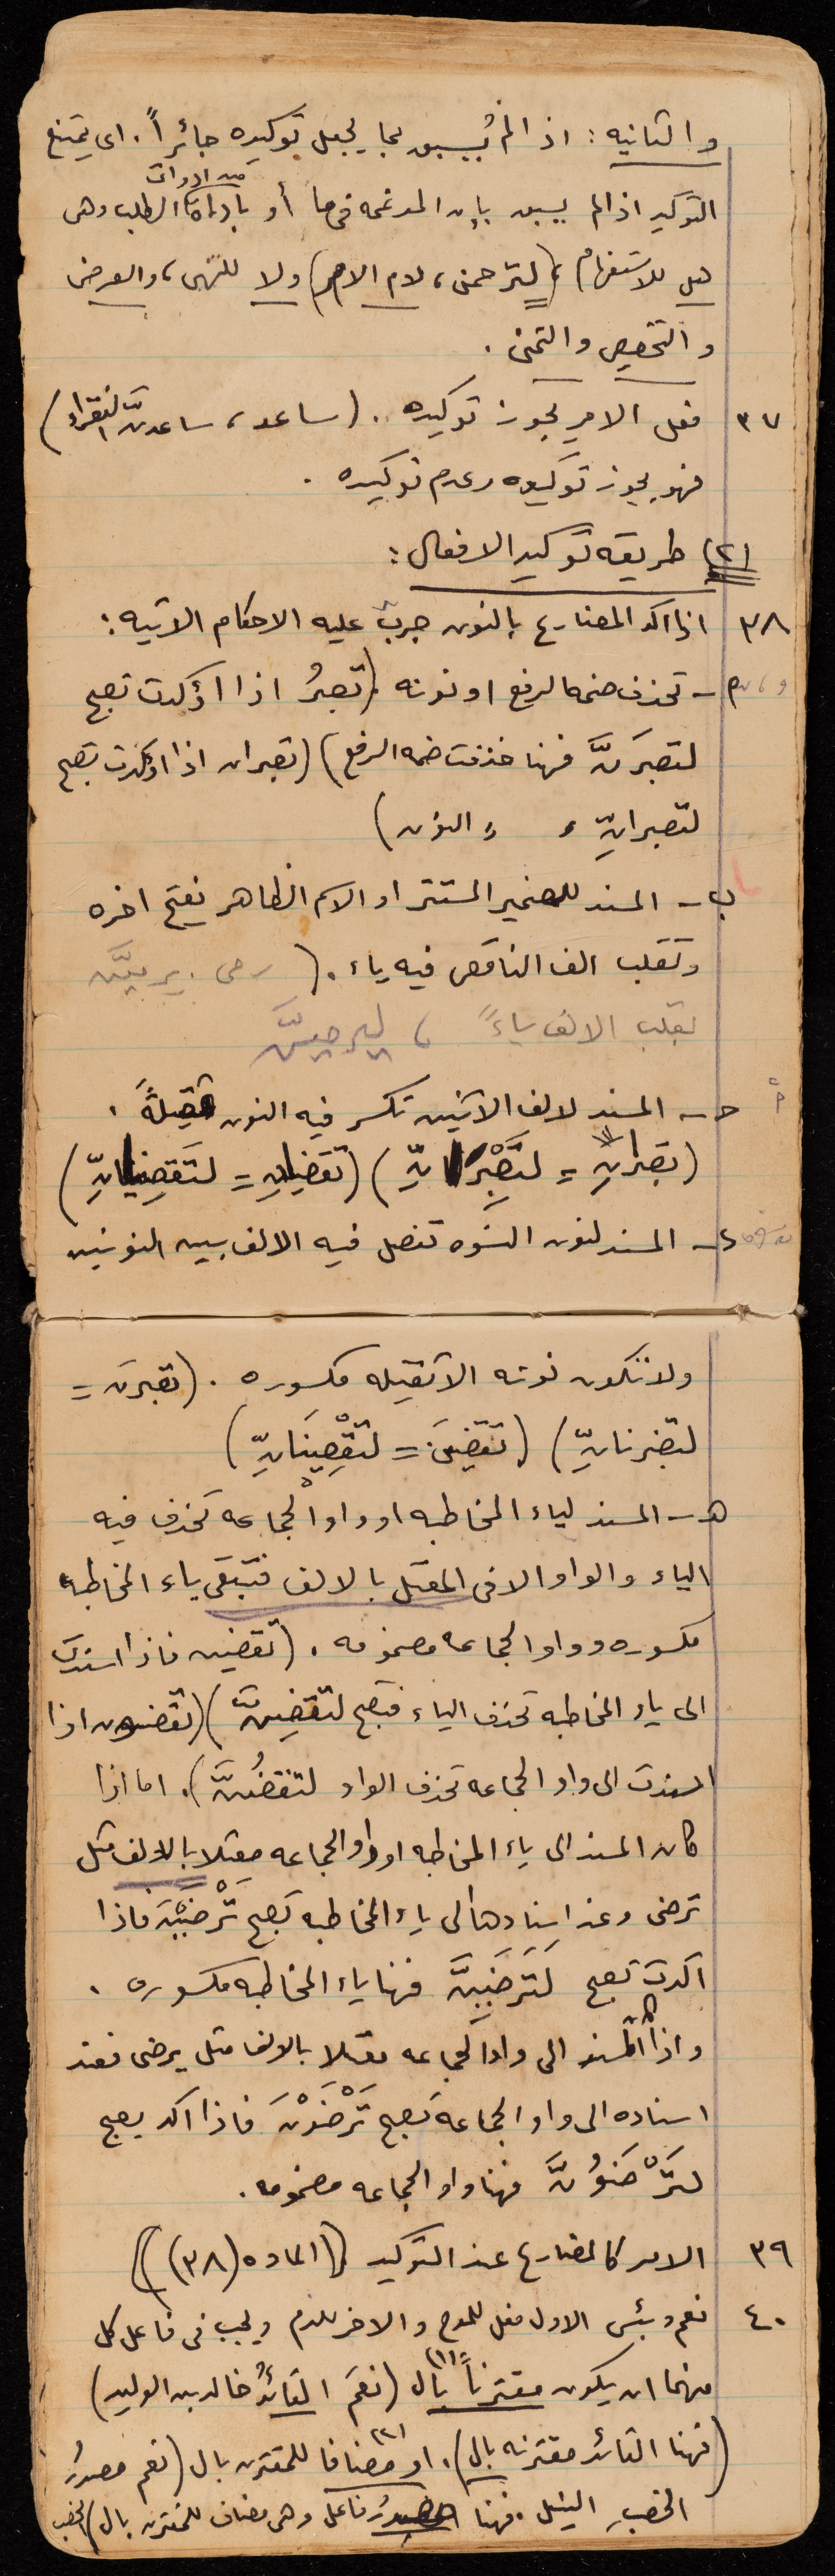 والثانيه : اذا لم يُسبق بما يجعل توكيده جائزاً . اى يمتنع
التوكيد اذا لم يسبق بإن المدغمه فى ما أو باداة من ادوات الطلب وهى
هل للاستفهام ، (لترحمن ، لام الامر) ولا للنهى ، والعرض
والتحضيض والتمنى .
٣٧ فعل الامر يجوز توكيده . (ساعد ، ساعدنَّ الفقراء)
فهو يجوز توكيده وعدم توكيده .
(٢) طريقه توكيد الافعال :
٣٨ اذا اكد المضارع بالنون جرت عليه الاحكام الاتيه :
أ – تحذف ضمه الرفع او نونه (تصبرُ اذا اؤكدت تصبح
لتصبرَنَّ فهنا حذفت ضمه الرفع) (تصبران اذا اوكدت تصبح
لتصبرانِّ " " النون)
ب – المسند للضمير المستتر او الاسم الظاهر يفتح اخره
وتقلب الف الناقص فيه ياء . (رمى . يرميَنَّ
تقلب الالف ياءً ،
حـ – المسند لالف الاثنين تكسر فيه النون ثقيلةً .
(تصبرانِ = لتَصْبِرَانِّ) (تقضيانِ = لتَقضِيانِّ)
د – المسند لنون النسوه تفصل فيه الالف بين النونين
ولا تكون نونه الا ثقيله مكسوره . (تصبرن =
لتصبرنانِّ) (تقضينَ = لتقْضِينَانِّ)
هـ – المسند لياء المخاطبه او واو الجماعه تحذف فيه
الياء والواو الا فى المعتل بالالف فتبقى ياء المخاطبه
مكسوره وواو الجماعه مضمومه . (تقضين فاذا اسندت
الى ياء المخاطبه تحذف الياء فتصبح لتقضِنَّ) (تقضون اذا
اسندت الى واو الجماعه تحذف الواو لتقضُنَّ) . اما اذا
كان المسند الى ياء المخاطبه او واو الجماعه معتلا بالالف مثل
ترضى وعند اسنادها الى ياء المخاطبه تصبح تَرْضَيْنَ فاذا
اكدت تصبح لَتَرضَيِنَّ فهنا ياء المخاطبه مكسوره .
واذا المسند الى واو الجماعه معتلا بالالف مثل يرضى فعند
اسناده الى واو الجماعه تصبح تَرْضَوْنَ فاذا اكد يصبح
لتَرْضَوُنَّ فهنا واو الجماعه مضمومه .
٣٩ الامر كالمضارع عند التوكيد (الماده (٣٨))
٤٠ نعم وبئس الاول فعل للمدح والاخر للذم ويجب فى فاعل كل
منهما ان يكون مقترناً (١) بال (نعمَ القائدُ خالد بن الوليد)
(فهنا القائد مقترنه بال) . او (٢) مضافا للمقترن بال (نعم مصدرُ
الخصبِ النيل . فهنا مصدرُ فاعل وهى مضاف للمقترن بال) الخصب